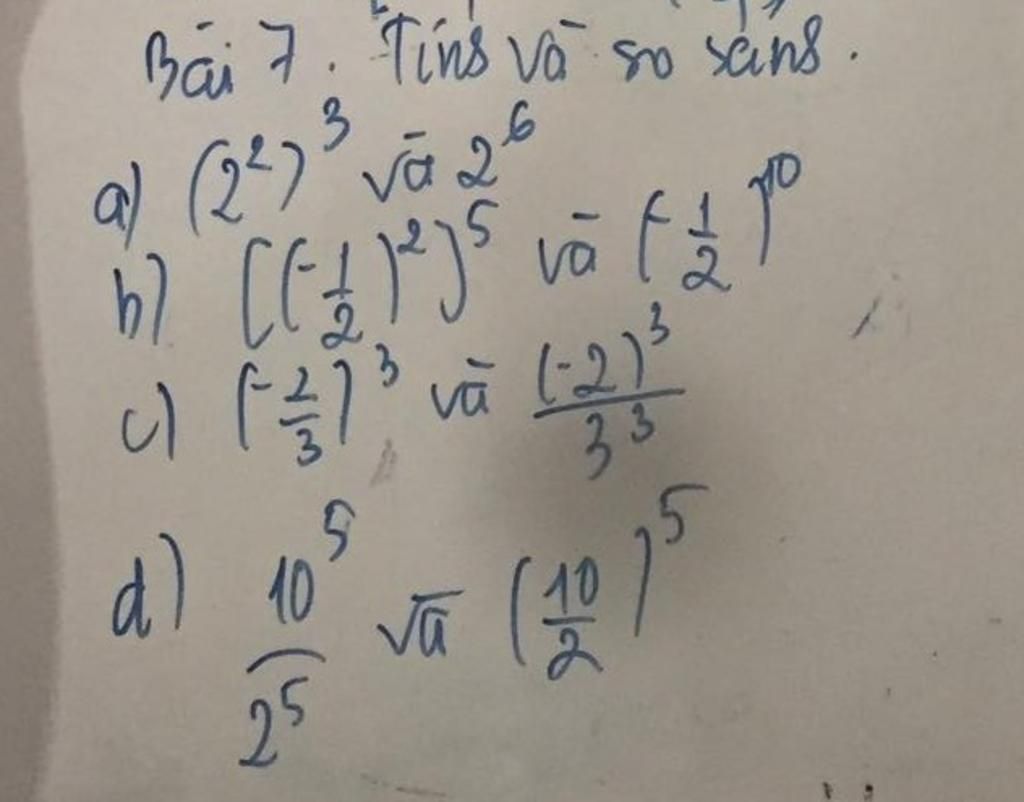 Bài 7. Tính và so sánh.
a) (2²)³ và 2⁶
b) [(-1/2)²]⁵ và (-1/2)¹⁰
c) (-2/3)³ và (-2)³/3³
d) 10⁵/2⁵ và (10/2)⁵